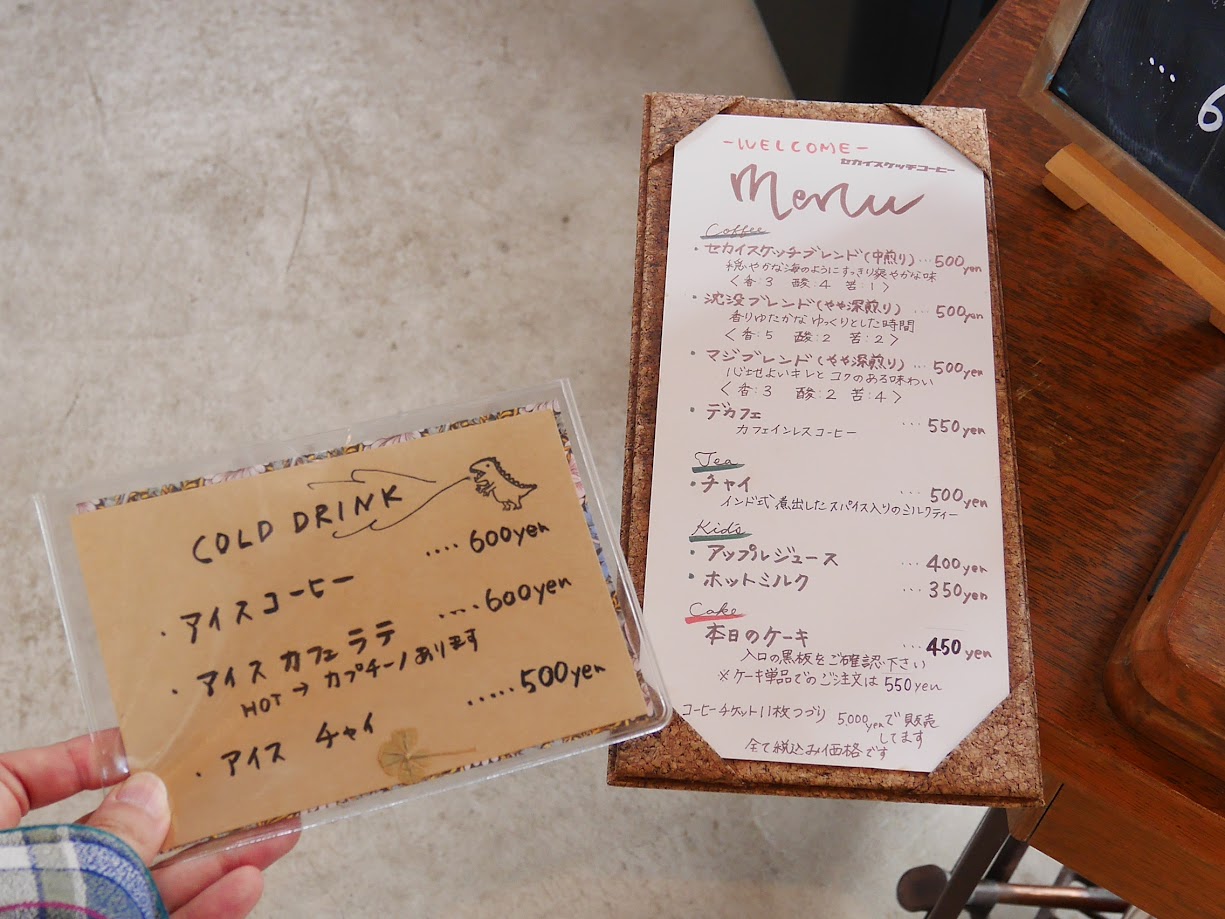 COLD DRINK
・アイスコーヒー ....600yen
・アイス カフェ ラテ ....600yen
HOT→カプチーノあります
・アイス チャイ .....500yen
-WELCOME-
セカイスケッチコーヒー
Menu
Coffee
・セカイスケッチブレンド(中煎り) ...500yen
穏やかな海のようにすっきり爽やかな味
<香:3 酸:4 苦:1>
・沈没ブレンド(やや深煎り) ...500yen
香りゆたかな ゆっくりとした時間
<香:5 酸:2 苦:2>
・マジブレンド(やや深煎り) ...500yen
心地よいキレと コクのある味わい
<香:3 酸:2 苦:4>
・デカフェ ...550yen
カフェインレスコーヒー
Tea
・チャイ ...500yen
インド式 煮出したスパイス入りのミルクティー
Kid's
・アップルジュース ...400yen
・ホットミルク ...350yen
Cake
本日のケーキ ...450yen
入口の黒板をご確認下さい
※ケーキ単品でのご注文は550yen
コーヒーチケット11枚つづり 5000yenで販売
してます
全て税込み価格です
...6